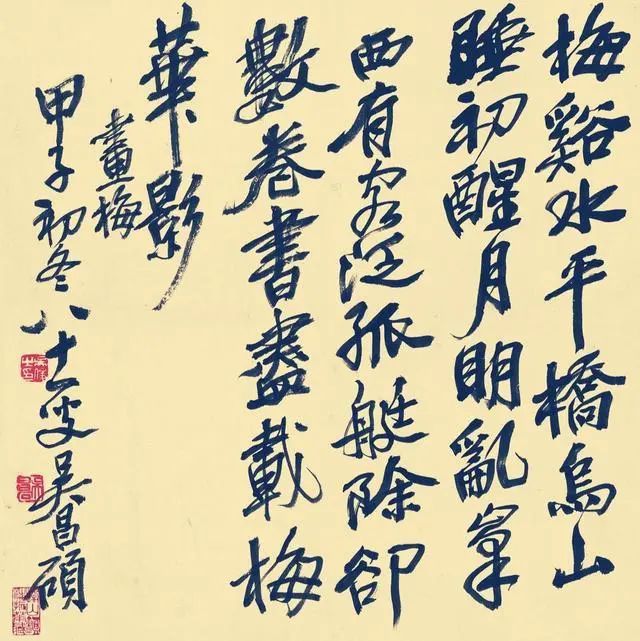 梅谿水平橋烏山
睡初醒月明亂峯
西有客泛孤艇除卻
數卷書盡載梅
華影
畫梅
甲子初冬八十一叟吳昌碩